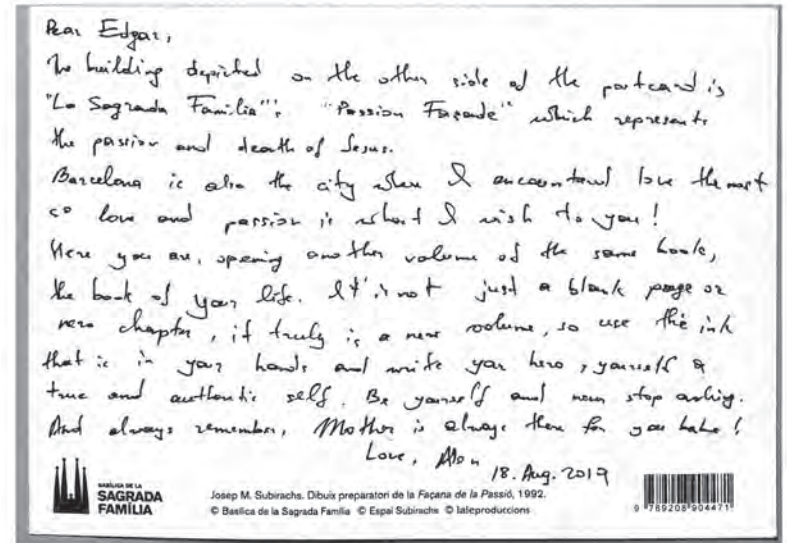 Dear Edgar,
The building depicted on the other side of the postcard is
"La Sagrada Familia"'s "Passion Facade" which represents
the passion and death of Jesus.
Barcelona is also the city where I encountered love the most
so love and passion is what I wish to you!
Here you are, opening another volume of the same book,
the book of your life. It's not just a blank page or
new chapter, it truly is a new volume, so use the ink
that is in your hands and write your hero, yourself a
true and authentic self. Be yourself and never stop asking.
And always remember, Mother is always there for you babe!
Love, Mom 18. Aug. 2019
BASÍLICA DE LA
SAGRADA
FAMÍLIA
Josep M. Subirachs. Dibuix preparatori de la Façana de la Passió, 1992.
© Basílica de la Sagrada Família © Espai Subirachs ©
9 789208 904471